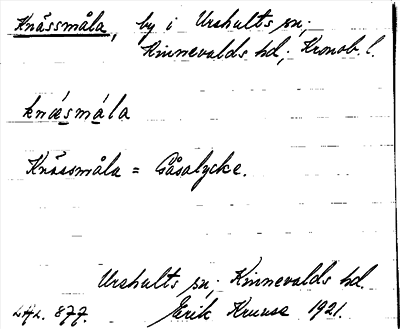 Knässmåla, by i Urshults sn;
Kinnevalds hd, Kronob. l.
knäsmåla
Knässmåla = Gåsalycke.
Urshults sn; Kinnevalds hd.
877. Erik Kruuse 1921.